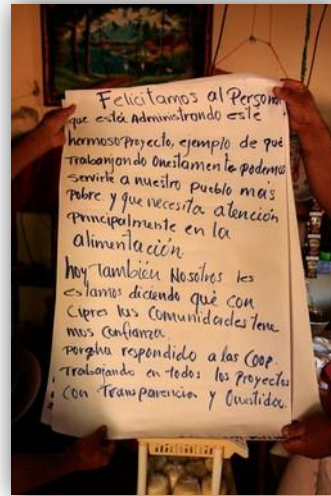 Felicitamos al Personal
que está Administrando este
hermoso Proyecto, ejemplo de que
Trabanjando Onestamente podemos
servirle a nuestro pueblo mas
Pobre y que necesita atención
principalmente en la
alimentación.
hoy También Nosotros les
estamos diciendo que con
Cipres las Comunidades tene
mos Confianza.
porqha respondido a las COOP.
Trabajando en todos los Proyectos
con Transparencia y Onestidad.